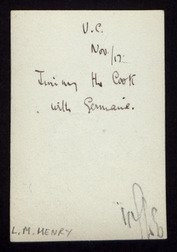 V.C.
Nov./17.
Jimmy the Cook
with Germaine.
L.M. HENRY